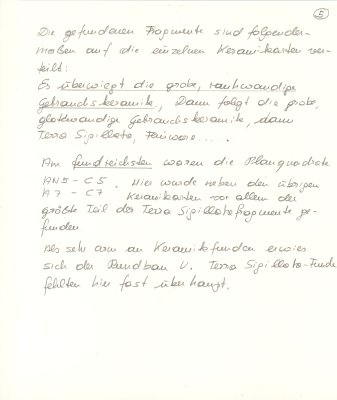 5
Die gefundenen Fragmente sind folgender-
maßen auf die einzelnen Keramikarten ver-
teilt:
Es überwiegt die grobe, rauhwandige
Gebrauchskeramik, Dann folgt die grobe,
glattwandige Gebrauchskeramik, dann
Terra Sigillata, Feinware.....
Am fundreichsten waren die Planquadrate
AN5 - C5. Hier wurde neben den übrigen
A7 - C7 Keramikarten vor allem der
größte Teil der Terra Sigillatafragmente ge-
funden
Als sehr arm an Keramikfunden erwies
sich der Rundbau V. Terra Sigillata-Funde
fehlten hier fast überhaupt.